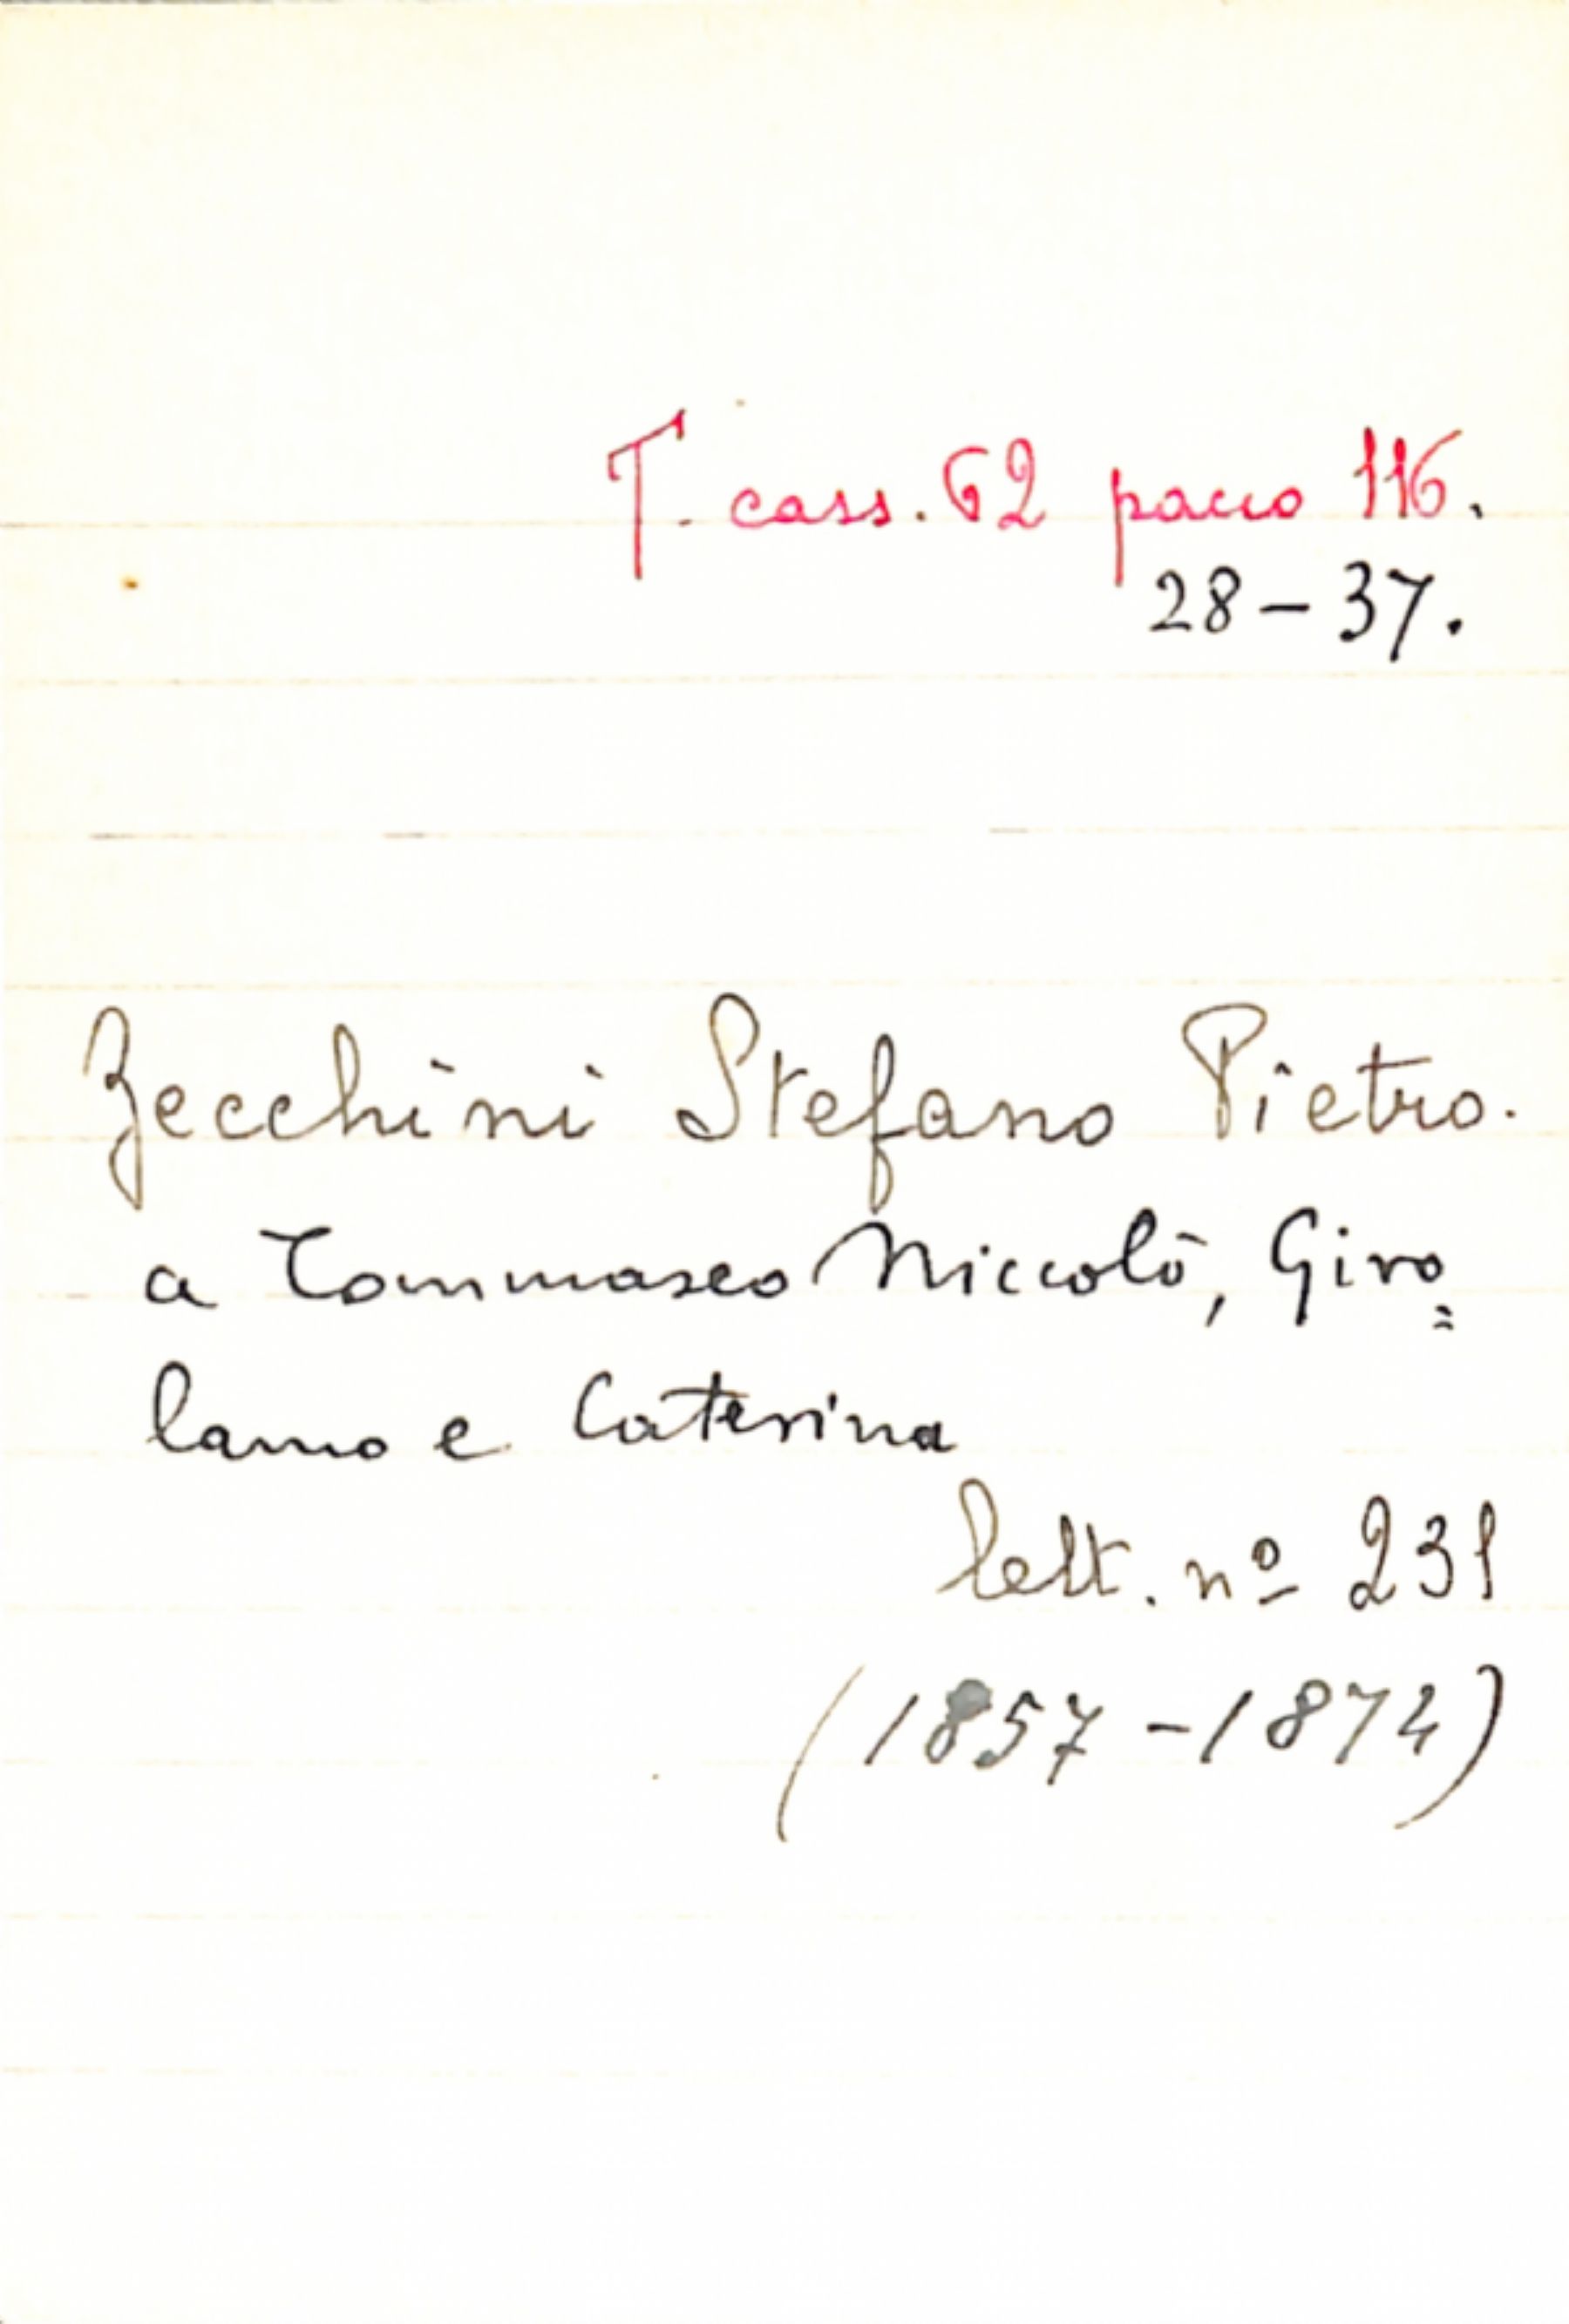 T. cass. 62 pacco 116.
28-37.
Zecchini Stefano Pietro.
a Tommaseo Niccolò, Giro=
lamo e Caterina
lett. nº 231
(1857-1874)